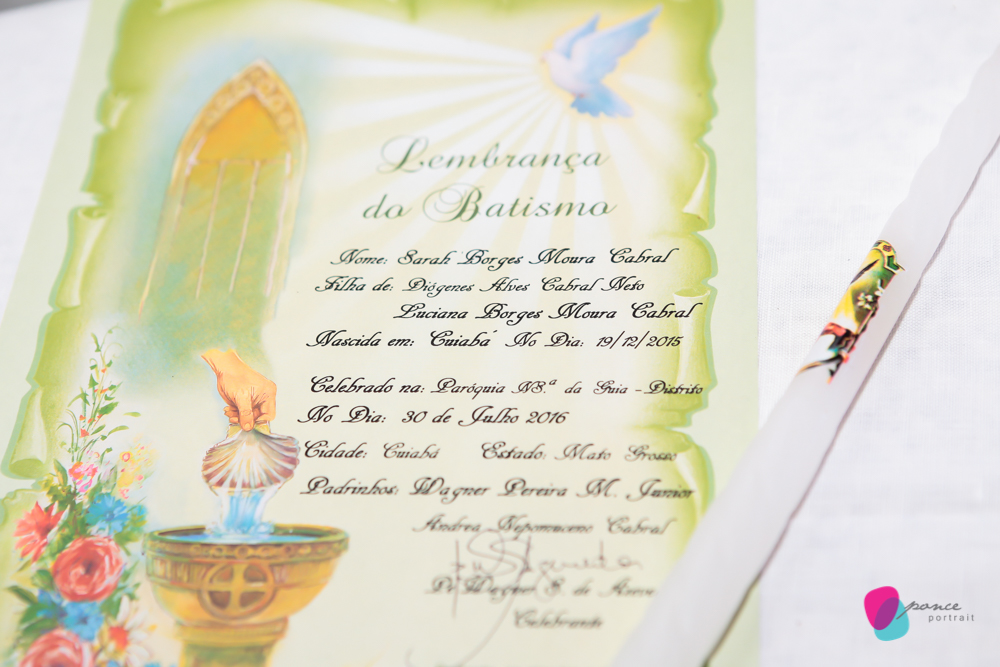 Lembrança
do Batismo
Nome: Sarah Borges Moura Cabral
Filha de: Diógenes Alves Cabral Neto
Luciana Borges Moura Cabral
Nascida em: Cuiabá No Dia: 19/12/2015
Celebrado na: Paróquia NS.ª da Guia - Distrito
No Dia: 30 de Julho 2016
Cidade: Cuiabá Estado: Mato Grosso
Padrinhos: Wagner Pereira M. Junior
Andrea Nepomuceno Cabral
Pe Wagner S. de
Celebrante
ponce
portrait